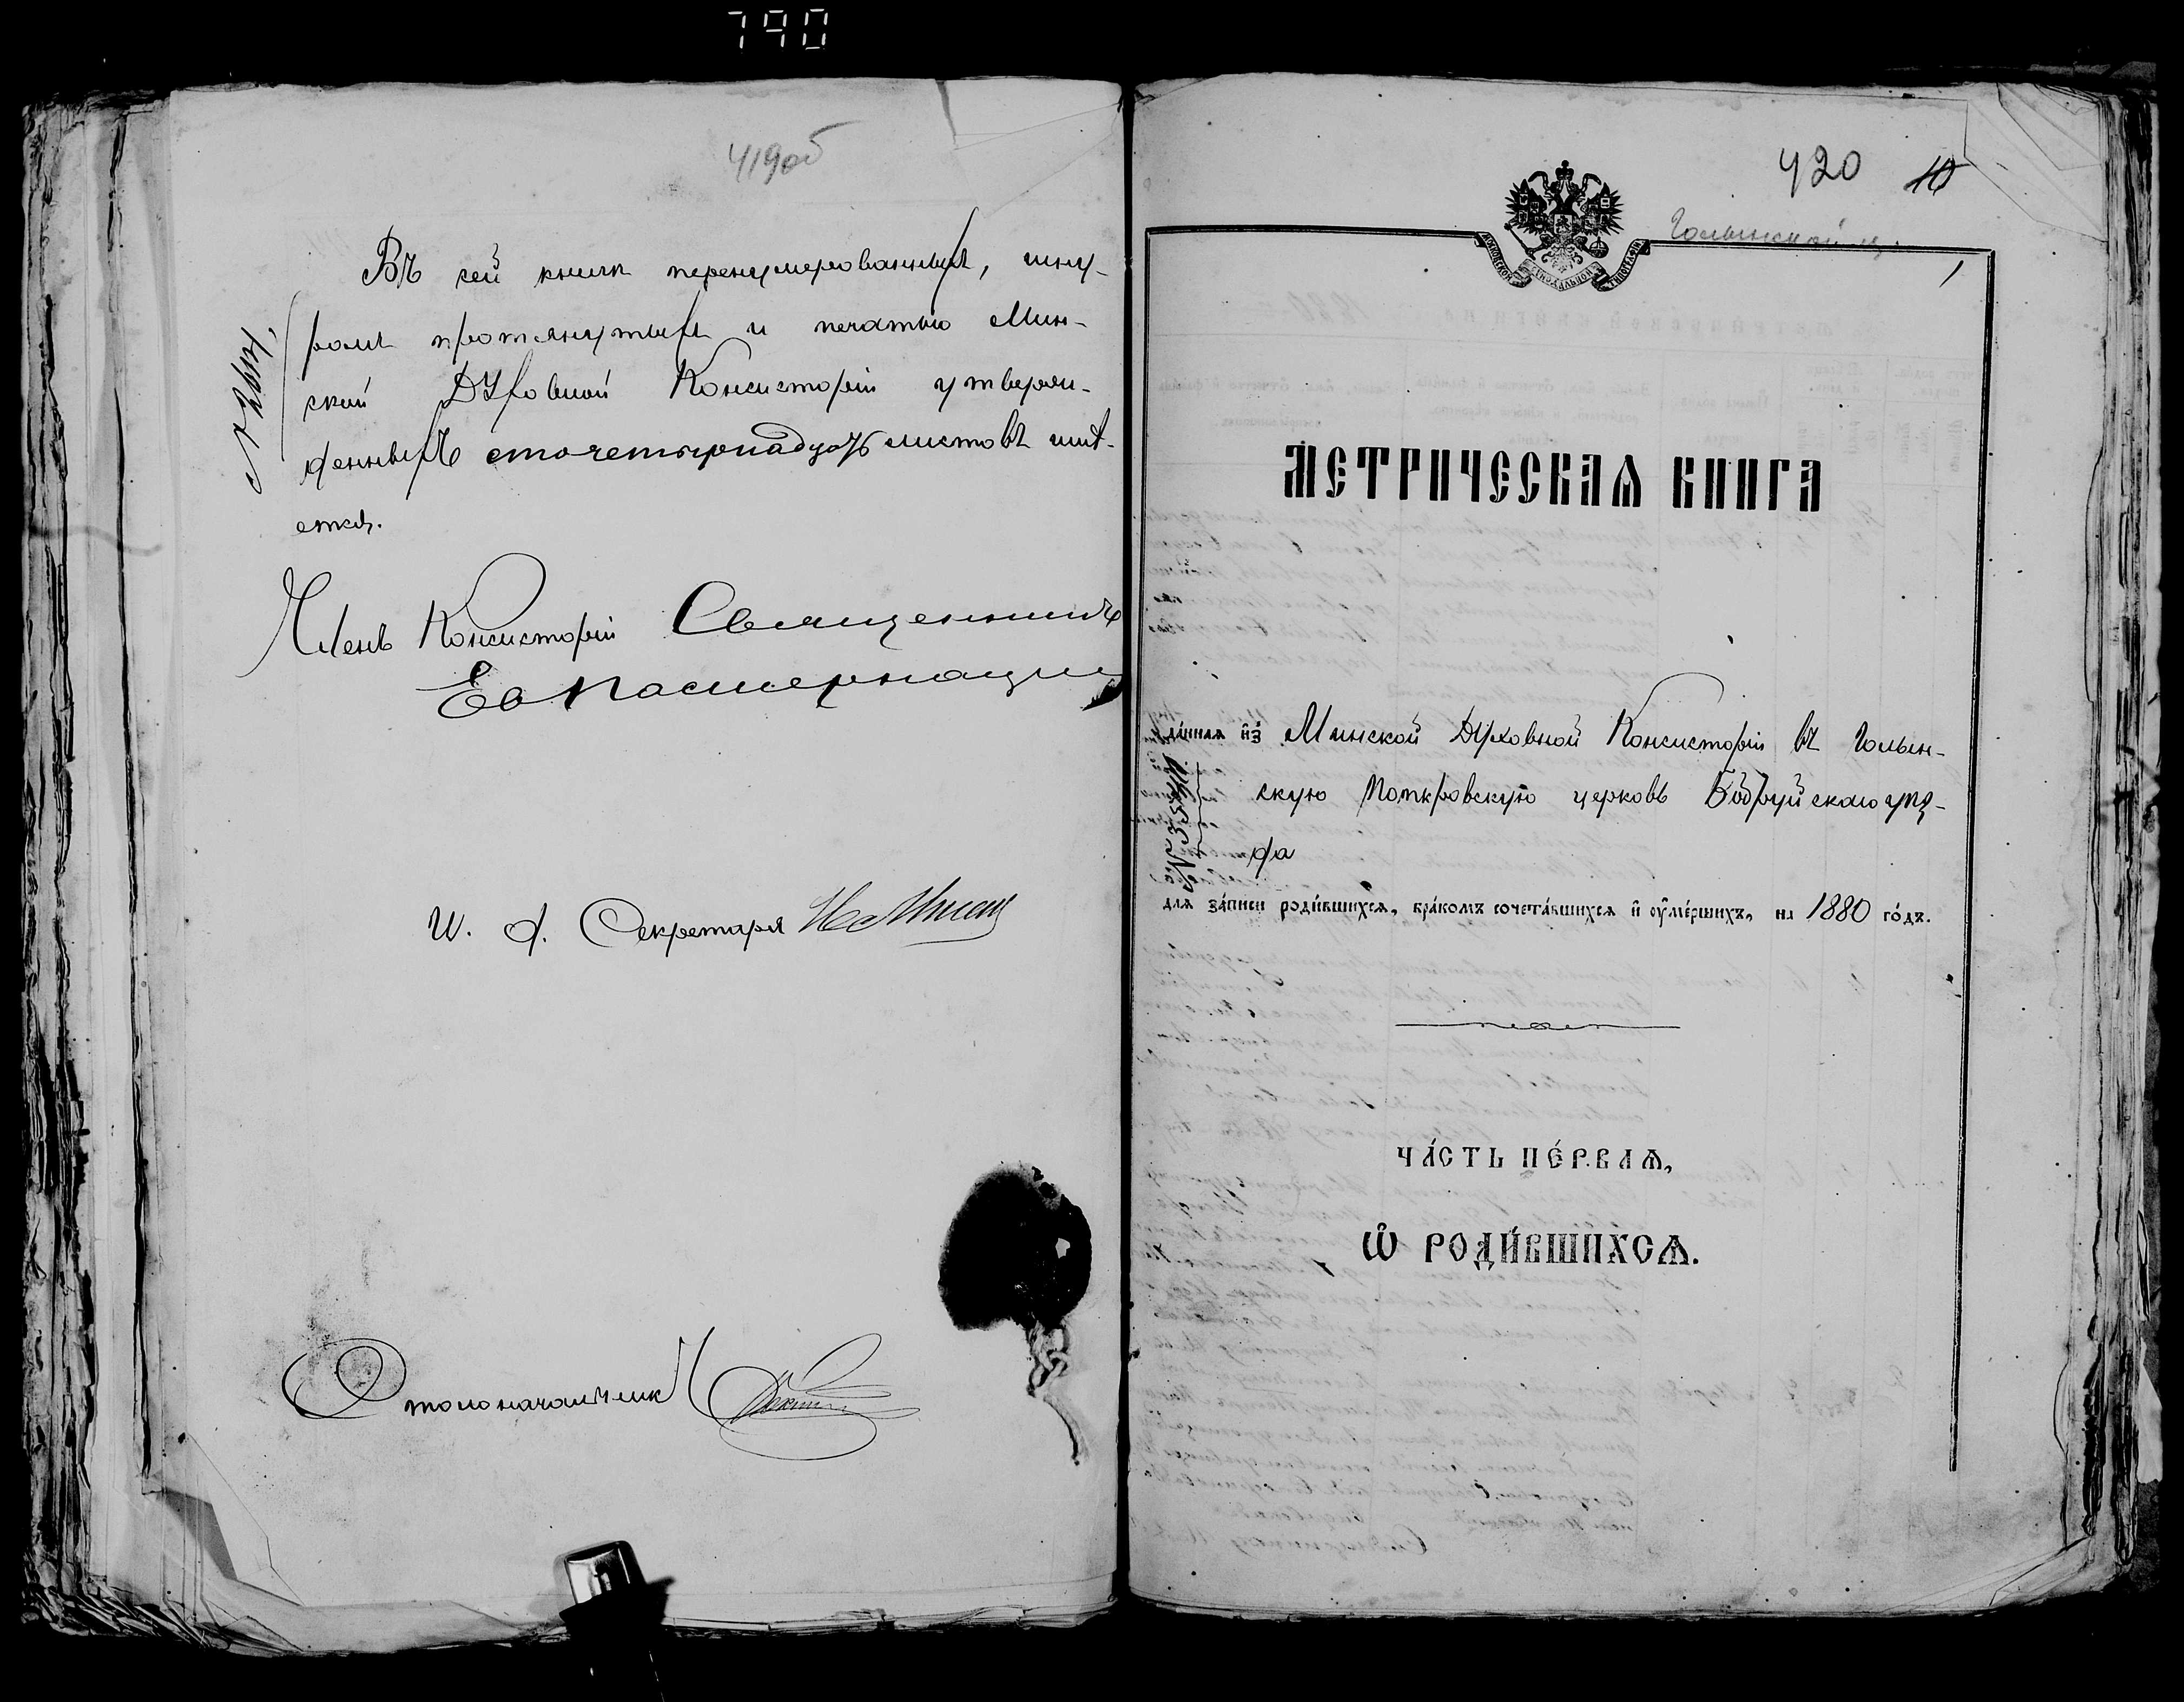 790
419об
Въ сей книгѣ перенумерованныхъ, шну-
ромъ протянутыхъ и печатью Мин-
ской Духовной Консисторіи утверж-
денныхъ сточетырнадцать листовъ имѣ-
ется.
Членъ Консисторіи Священникъ
И. д. Секретаря
Столоначальникъ
420 10
Голынской ц.
1
МОСКОВСКОЙ СѴНОДАЛЬНОЙ ТИПОГРАФІИ
МЕТРИЧЕСКАѦ КНИГА
да́ннаѧ и҆зъ Минской Духовной Консисторіи въ Голын-
скую Покровскую церковь Бобруйскаго уѣз-
да
для за́писи роди́вшихсѧ, бра́комъ сочета́вшихсѧ и҆ ᲂу҆ме́ршихъ, на 1880 го́дъ.
ЧА́СТЬ ПЕ́РВАѦ,
Ѽ РОДИ́ВШИХСѦ.